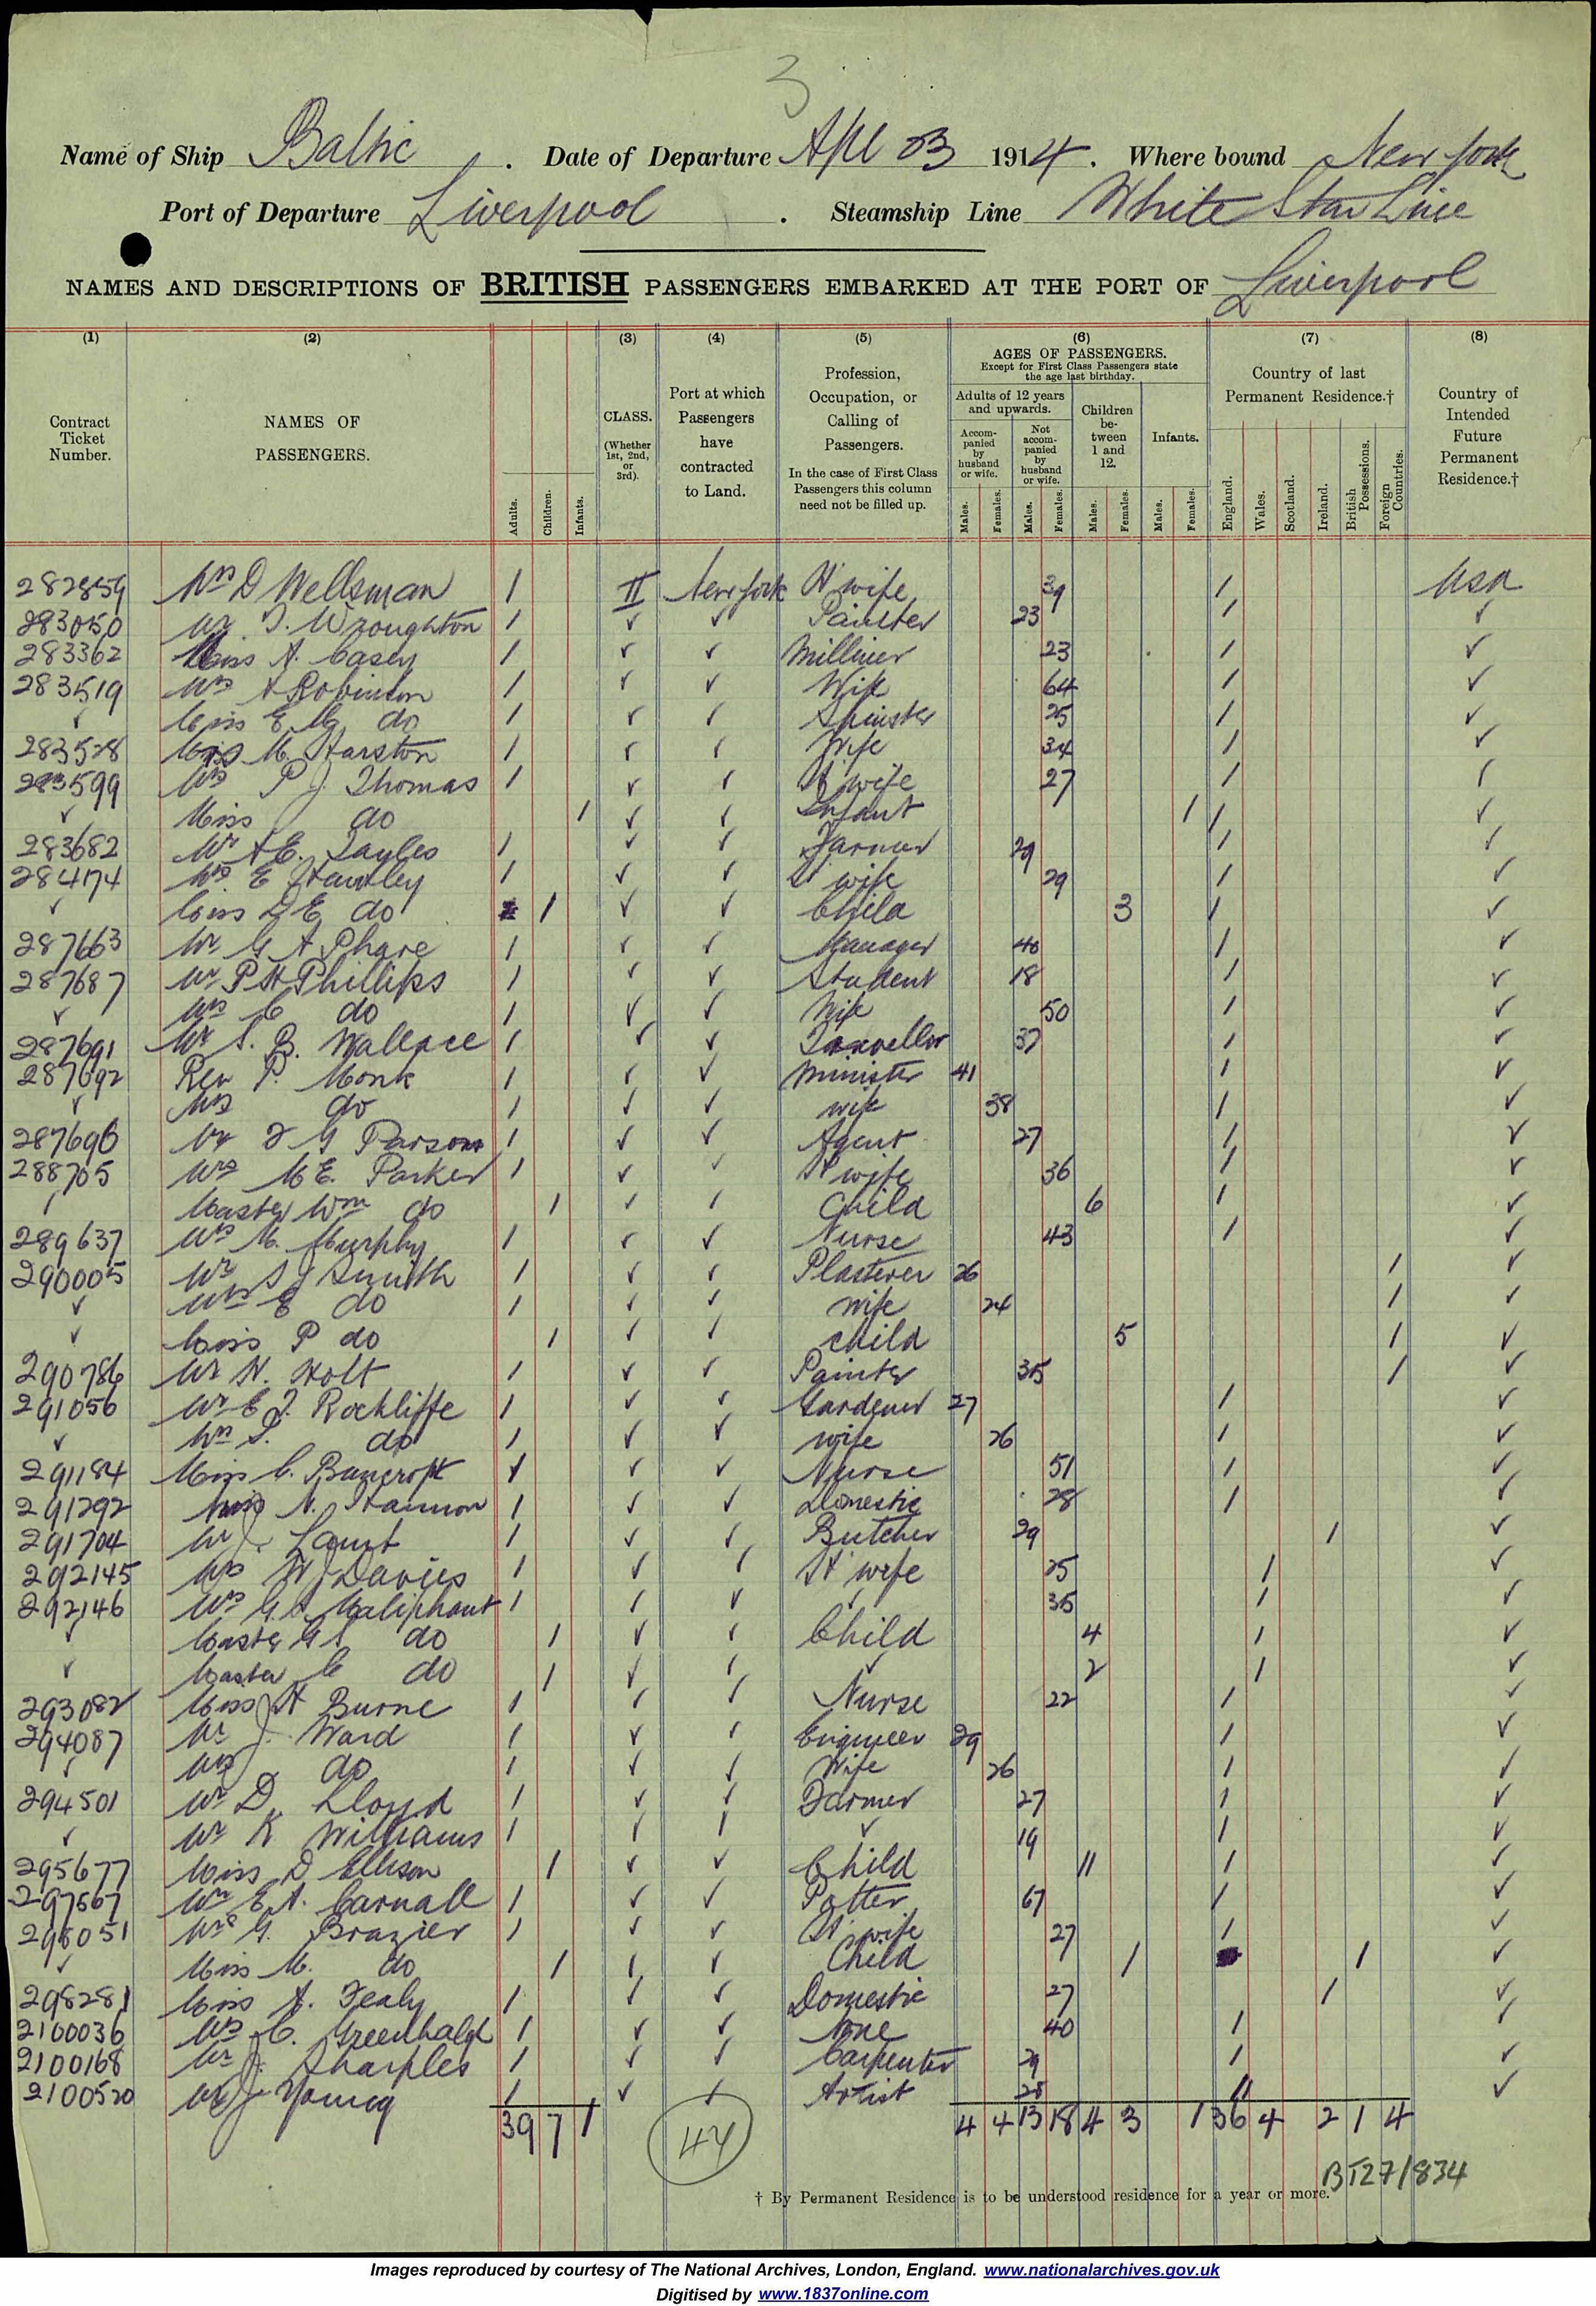 3
Name of Ship Baltic . Date of Departure Apl 23 1914. Where bound New York
Port of Departure Liverpool . Steamship Line White Star Line
NAMES AND DESCRIPTIONS OF BRITISH PASSENGERS EMBARKED AT THE PORT OF Liverpool
(1) (2) (3) (4) (5) (6) (7) (8)
Contract Ticket Number.
NAMES OF PASSENGERS.
Adults. Children. Infants.
CLASS. (Whether 1st, 2nd, or 3rd).
Port at which Passengers have contracted to Land.
Profession, Occupation, or Calling of Passengers.
In the case of First Class Passengers this column need not be filled up.
AGES OF PASSENGERS.
Except for First Class Passengers state the age last birthday.
Adults of 12 years and upwards.
Accompanied by husband or wife.
Not accompanied by husband or wife.
Children between 1 and 12.
Infants.
Males. Females. Males. Females. Males. Females. Males. Females.
Country of last Permanent Residence.†
England. Wales. Scotland. Ireland. British Possessions. Foreign Countries.
Country of Intended Future Permanent Residence.†
282859 Mrs D Wellsman 1 II New York H'wife 39 1 USA
283050 Mr J. Wroughton 1 ✓ ✓ Painter 23 1 ✓
283362 Miss A. Casey 1 ✓ ✓ Milliner 23 1 ✓
283519 Mrs A Robinson 1 ✓ ✓ Wife 64 1 ✓
✓ Miss E M do 1 ✓ ✓ Spinster 25 1 ✓
283528 Mrs M. Harston 1 ✓ ✓ Wife 34 1 ✓
283599 Mrs P J Thomas 1 ✓ ✓ H'wife 27 1 ✓
✓ Miss J do 1 ✓ ✓ Infant 1 1 ✓
283682 Mr A E. Sayles 1 ✓ ✓ Farmer 29 1 ✓
284174 Mrs E Hantley 1 ✓ ✓ H'wife 29 1 ✓
✓ Miss D E do 1 ✓ ✓ Child 3 1 ✓
287663 Mr G A Phare 1 ✓ ✓ Manager 40 1 ✓
287687 Mr P H Phillips 1 ✓ ✓ Student 18 1 ✓
✓ Mrs C do 1 ✓ ✓ Wife 50 1 ✓
287691 Mr S. B. Wallace 1 ✓ ✓ Traveller 37 1 ✓
287692 Rev P. Monk 1 ✓ ✓ Minister 41 1 ✓
✓ Mrs do 1 ✓ ✓ wife 38 1 ✓
287696 Mr J G Parsons 1 ✓ ✓ Agent 27 1 ✓
288705 Mrs M E. Parker 1 ✓ ✓ H'wife 36 1 ✓
✓ Master Wm do 1 ✓ ✓ Child 6 1 ✓
289637 Mrs M. Murphy 1 ✓ ✓ Nurse 43 1 ✓
290005 Mr S J Smith 1 ✓ ✓ Plasterer 26 1 ✓
✓ Mrs E do 1 ✓ ✓ wife 24 1 ✓
✓ Miss P do 1 ✓ ✓ child 5 1 ✓
290786 Mr H. Holt 1 ✓ ✓ Painter 35 1 ✓
291056 Mr E J. Rockliffe 1 ✓ ✓ Gardener 27 1 ✓
✓ Mrs S. do 1 ✓ ✓ wife 26 1 ✓
291184 Miss C. Bancroft 1 ✓ ✓ Nurse 51 1 ✓
291292 Miss N. Hannon 1 ✓ ✓ Domestic 28 1 ✓
291704 Mr J. Lount 1 ✓ ✓ Butcher 29 1 ✓
292145 Mrs W J Davies 1 ✓ ✓ H'wife 25 1 ✓
292146 Mrs G S Maliphant 1 ✓ ✓ ✓ 35 1 ✓
✓ Master G S do 1 ✓ ✓ Child 4 1 ✓
✓ Master C do 1 ✓ ✓ ✓ 2 1 ✓
293082 Miss A Burne 1 ✓ ✓ Nurse 22 1 ✓
294087 Mr J. Ward 1 ✓ ✓ Engineer 29 1 ✓
✓ Mrs do 1 ✓ ✓ Wife 26 1 ✓
294501 Mr D. Lloyd 1 ✓ ✓ Farmer 27 1 ✓
✓ Mr K Williams 1 ✓ ✓ ✓ 19 1 ✓
295677 Miss D Ellison 1 ✓ ✓ Child 11 1 ✓
297567 Mr E A. Carnall 1 ✓ ✓ Potter 67 1 ✓
298051 Mrs G. Brazier 1 ✓ ✓ H'wife 27 1 ✓
✓ Miss M. do 1 ✓ ✓ Child 1 1 ✓
298281 Miss A. Fealy 1 ✓ ✓ Domestic 27 1 ✓
2100036 Mrs C. Greenhalgh 1 ✓ ✓ None 40 1 ✓
2100168 Mr J. Sharples 1 ✓ ✓ Carpenter 29 1 ✓
2100520 Mr J Young 1 ✓ ✓ Artist 28 11 ✓
39 7 1 47 4 4 13 18 4 3 1 36 4 2 1 4
BT27/834
† By Permanent Residence is to be understood residence for a year or more.
Images reproduced by courtesy of The National Archives, London, England. www.nationalarchives.gov.uk
Digitised by www.1837online.com